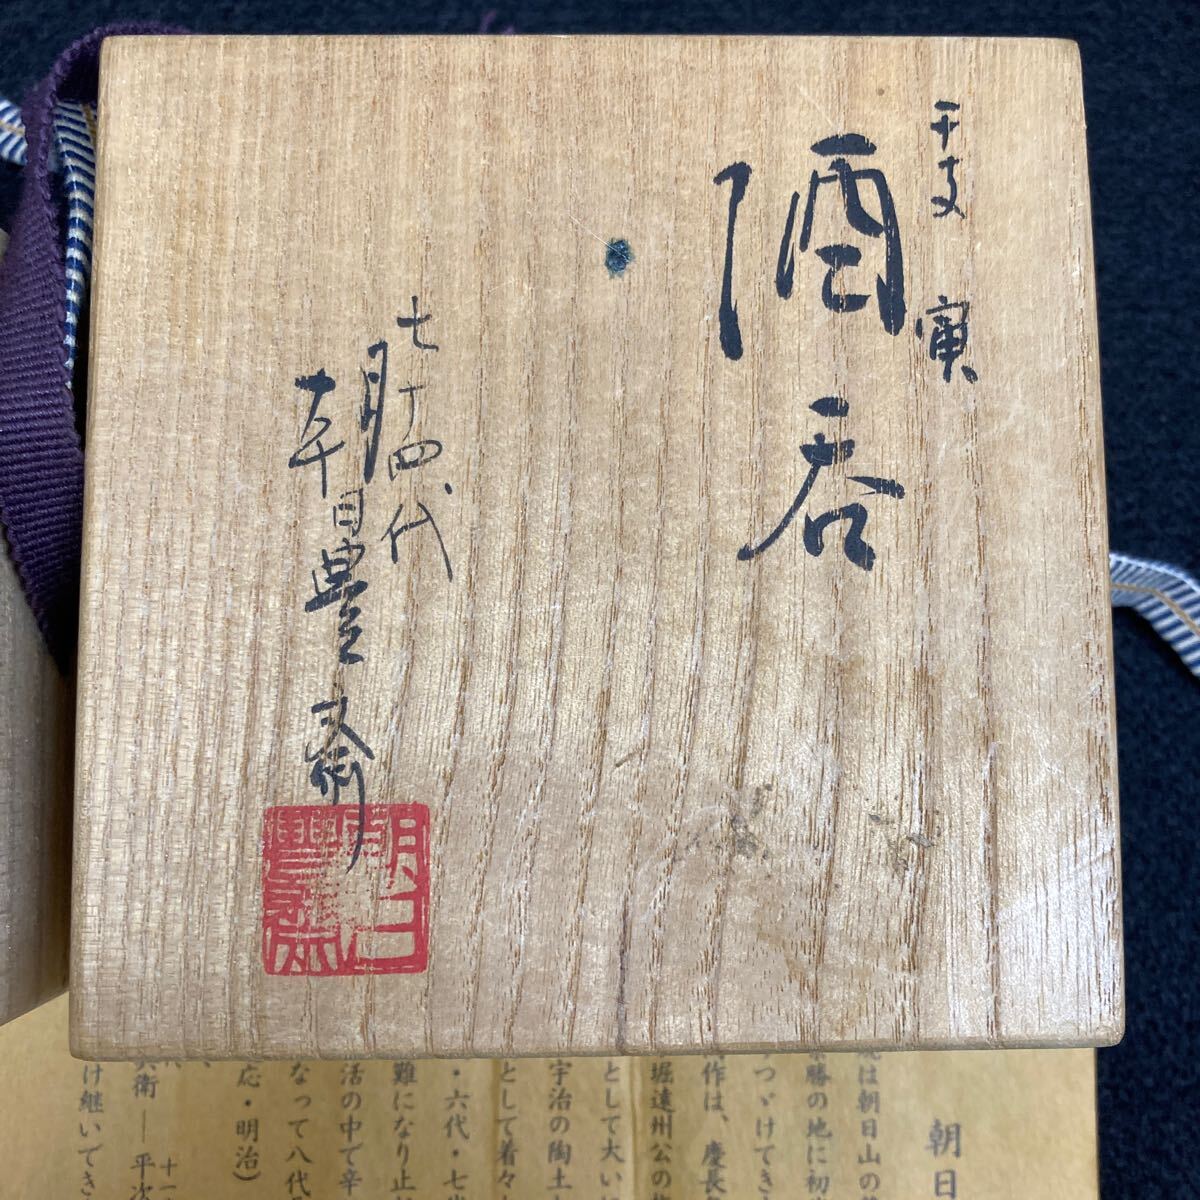 干支 寅
酒呑
十四代
朝日豊斎
朝日
豊斎
朝日
は朝日山の
勝の地に初
つゞけてき
作は、慶長
堀遠州公の
として大い
宇治の陶土
として着々
・六代・七
難になり止
活の中で辛
なって八代
応・明治)
兵衛―平次
け継いでき